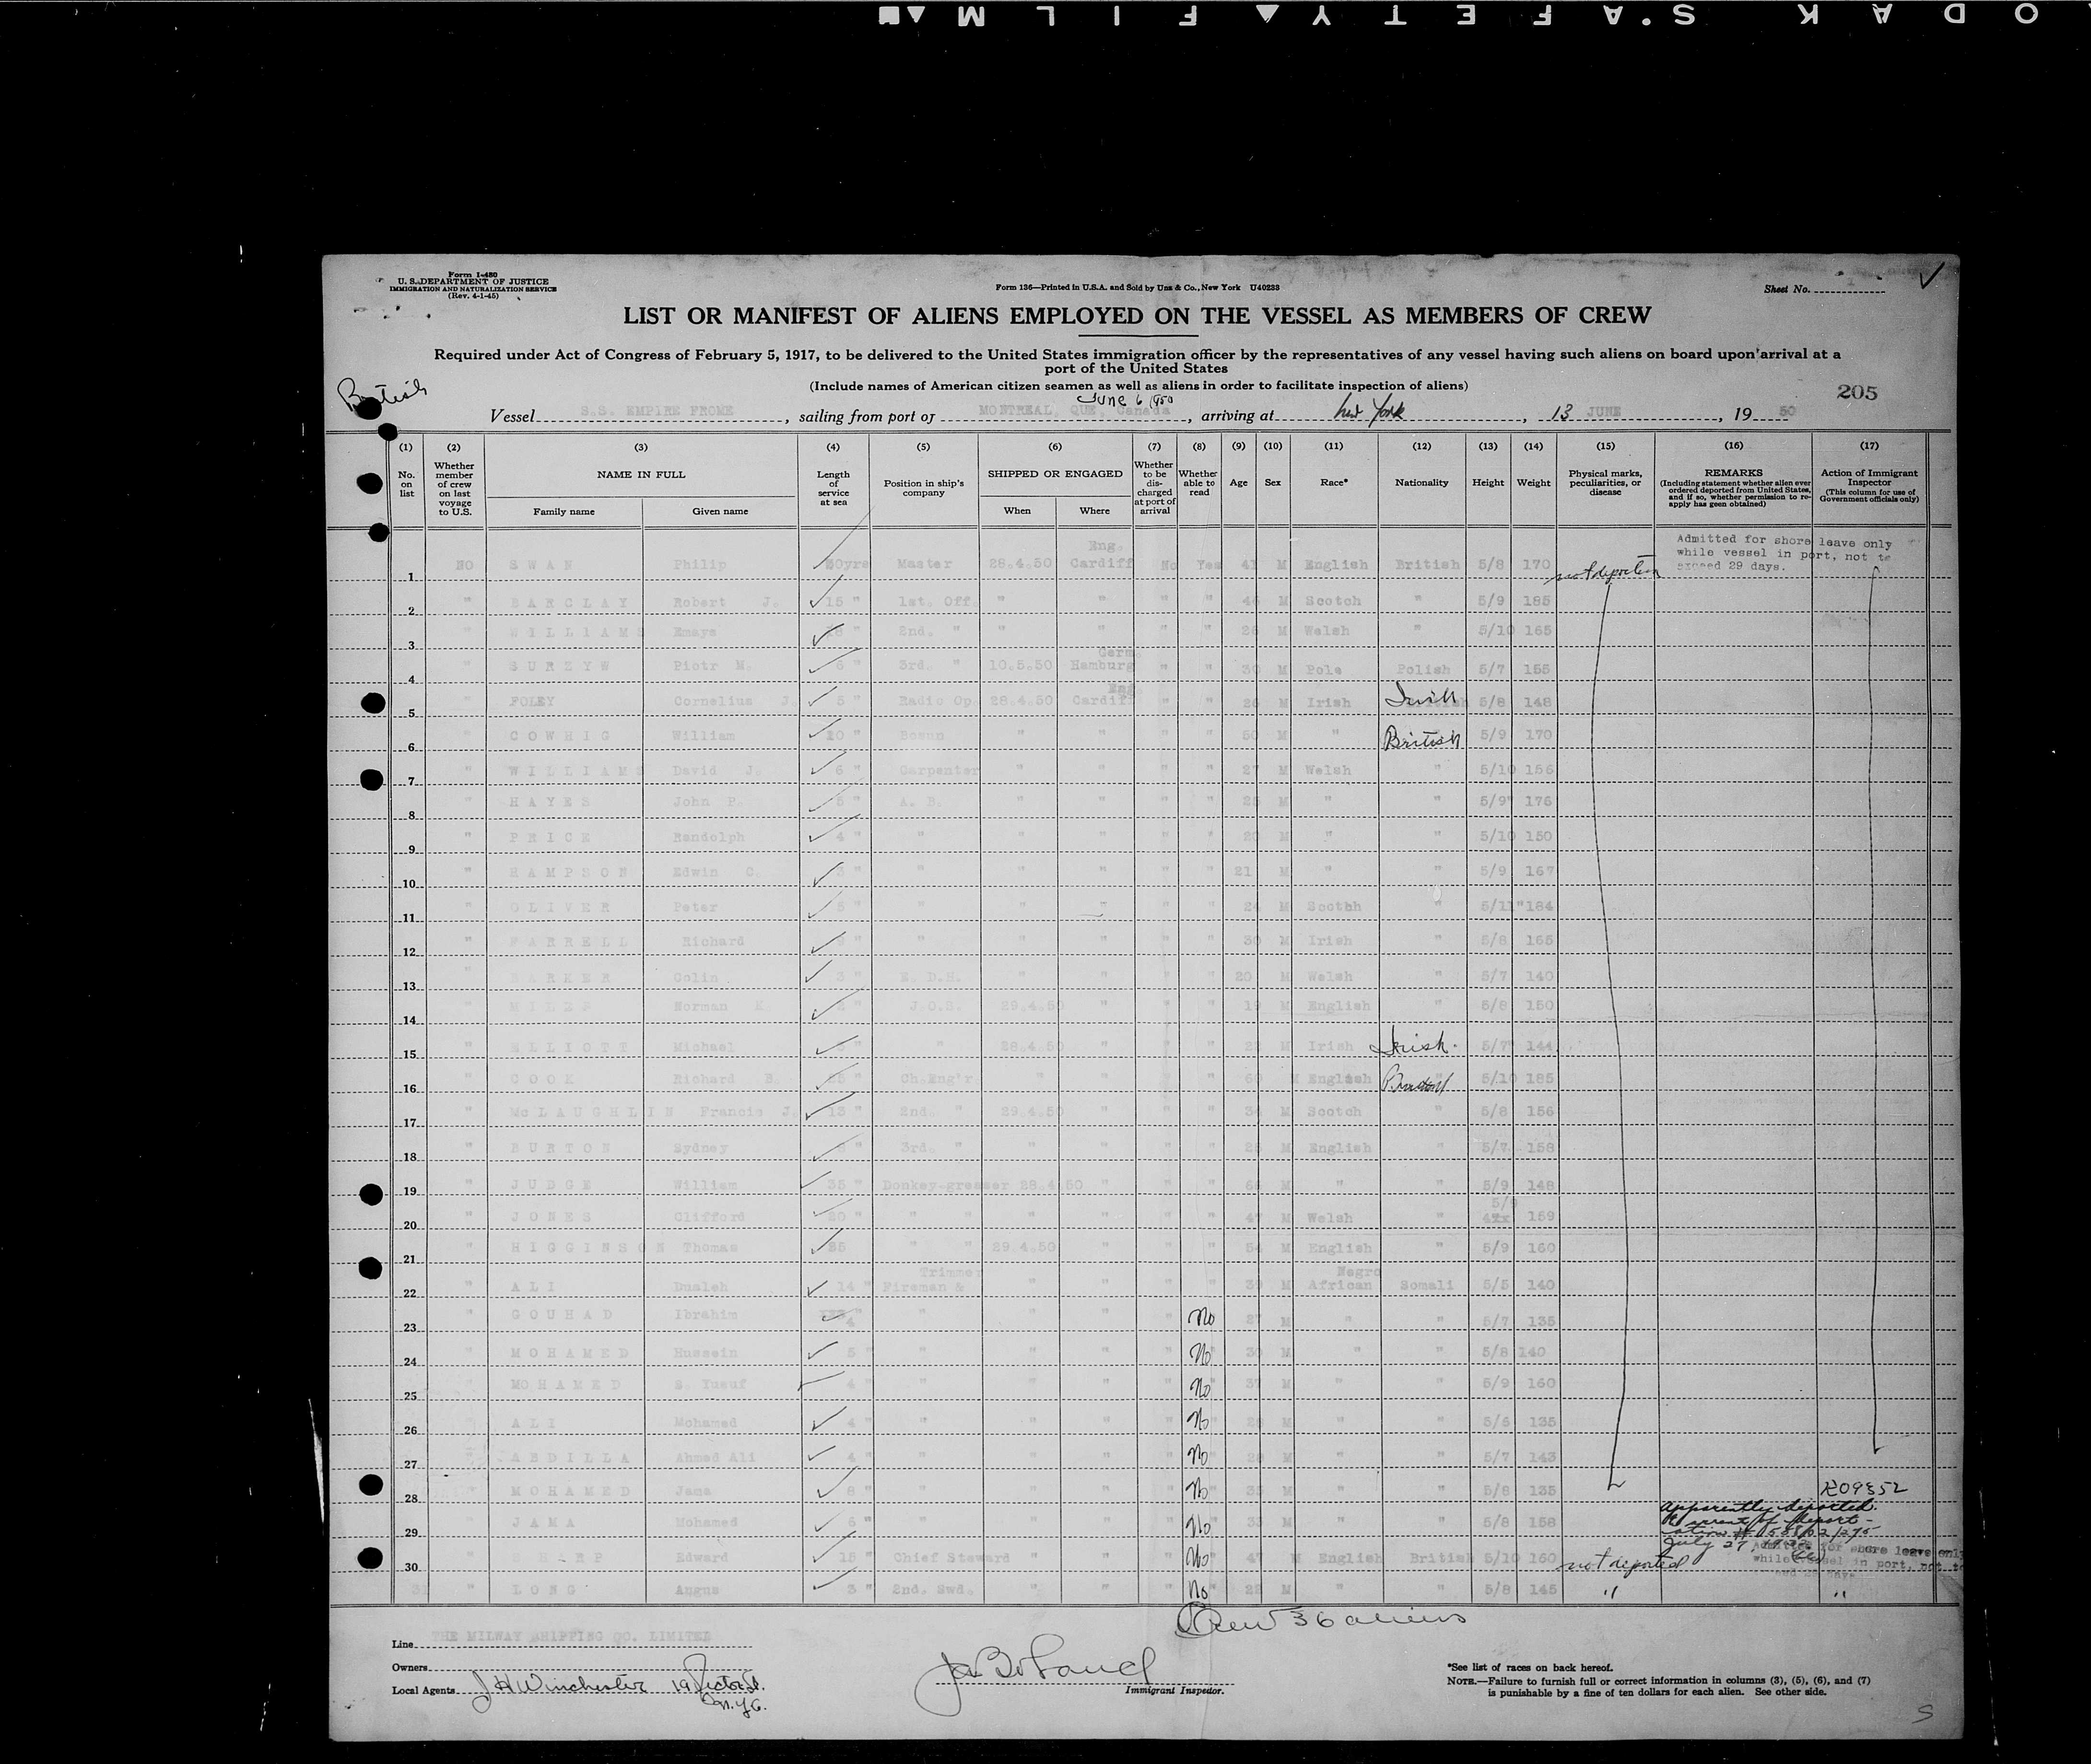 ODAK S.AFETY FILM
Form I-480
U. S. DEPARTMENT OF JUSTICE
IMMIGRATION AND NATURALIZATION SERVICE
(Rev. 4-1-45)
Form 136—Printed in U.S.A. and Sold by Unz & Co., New York U40233
Sheet No.
LIST OR MANIFEST OF ALIENS EMPLOYED ON THE VESSEL AS MEMBERS OF CREW
Required under Act of Congress of February 5, 1917, to be delivered to the United States immigration officer by the representatives of any vessel having such aliens on board upon arrival at a
port of the United States
(Include names of American citizen seamen as well as aliens in order to facilitate inspection of aliens)
British
205
June 6 1950
Vessel S.S. EMPIRE FROME, sailing from port of MONTREAL, QUE, Canada, arriving at New York, 13 JUNE, 19 50
(1) No. on list
(2) Whether member of crew on last voyage to U.S.
(3) NAME IN FULL Family name Given name
(4) Length of service at sea
(5) Position in ship's company
(6) SHIPPED OR ENGAGED When Where
(7) Whether to be discharged at port of arrival
(8) Whether able to read
(9) Age
(10) Sex
(11) Race*
(12) Nationality
(13) Height
(14) Weight
(15) Physical marks, peculiarities, or disease
(16) REMARKS (Including statement whether alien ever ordered deported from United States, and if so, whether permission to re-apply has geen obtained)
(17) Action of Immigrant Inspector (This column for use of Government officials only)
Admitted for shore leave only
while vessel in port, not to
exceed 29 days.
1 NO SWAN Philip yrs Master 28.4.50 Eng. Cardiff No Yes 41 M English British 5/8 170 not deported
2 " BARCLAY Robert J. 15 " 1st. Off. " " " " M Scotch " 5/9 185
3 " WILLIAMS Emays " 2nd. " " " " " 26 M Welsh " 5/10 165
4 " SUREYW Piotr M. 6 " 3rd. " 10.5.50 Germ. Hamburg " " 30 M Pole Polish 5/7 155
5 " FOLEY Cornelius J. 5 " Radio Op. 28.4.50 Eng. Cardiff " " M Irish Irish 5/8 148
6 " COWHIG William 20 " Bosun " " " " 50 M " British 5/9 170
7 " WILLIAMS David J. 6 " Carpenter " " " " 27 M Welsh " 5/10 156
8 " HAYES John P. " A. B. " " " " 25 M " " 5/9 176
9 " PRICE Randolph 4 " " " " " " M " " 5/10 150
10 " HAMPSON Edwin C. " " " " " " 21 M " " 5/9 167
11 " OLIVER Peter 5 " " " " " " M Scotch " 5/11 184
12 " FARRELL Richard " " " " " " 30 M Irish " 5/8 165
13 " Colin 3 " E. D.H. " " " " 20 M Welsh " 5/7 140
14 " MILES Norman K. " J.O.S. 29.4.50 " " " 19 M English " 5/8 150
15 " ELLIOTT Michael " " 28.4.50 " " " M Irish Irish. 5/7 144
16 " COOK Richard B. " Ch.Eng'r " " " " 60 M English British 5/10 185
17 " McLAUGHLIN Francis J. 13 " 2nd. " 29.4.50 " " " M Scotch " 5/8 156
18 " BURTON Sydney " 3rd. " " " " " M English " 5/7 158
19 " JUDGE William 35 " Donkey-greaser 28.4.50 " " " M " " 5/9 148
20 " JONES Clifford 20 " " " " " " " 47 M Welsh " 5/9 159
21 " HIGGINSON Thomas " " 29.4.50 " " " 54 M English " 5/9 160
22 " ALI Dualeh 14 " Trimmer Fireman & " " " " M Negro African Somali 5/5 140
23 " GOUHAD Ibrahim 4 " " " " No 27 M " " 5/7 135
24 " MOHAMED Hussein 5 " " " " " No 30 M " " 5/8 140
25 " MOHAMED S. Yusuf 4 " " " " " No 37 M " " 5/9 160
26 " ALI Mohamed 4 " " " " " No M " " 5/6 135
27 " ABDILLA Ahmed Ali 4 " " " " " No M " " 5/7 143
28 " MOHAMED Jama 8 " " " " " No M " " 5/8 135 R09352
29 " JAMA Mohamed " " " " " No M " " 5/8 158
Apparently deported.
Warrant of deport-
ation
July 27,
30 " Edward 15 " Chief Steward " " " No 47 M English British 5/10 160 not deported
Admitted for shore leave only
while vessel in port, not to
31 " LONG Angus 3 " 2nd. Swd. " " " No 22 M " " 5/8 145 " "
Crew 36 aliens
Line THE MILWAY SHIPPING CO. LIMITED
Owners
Local Agents J H Winchester 19 Rector St.
N.Y.C.
Immigrant Inspector.
*See list of races on back hereof.
NOTE.—Failure to furnish full or correct information in columns (3), (5), (6), and (7)
is punishable by a fine of ten dollars for each alien. See other side.